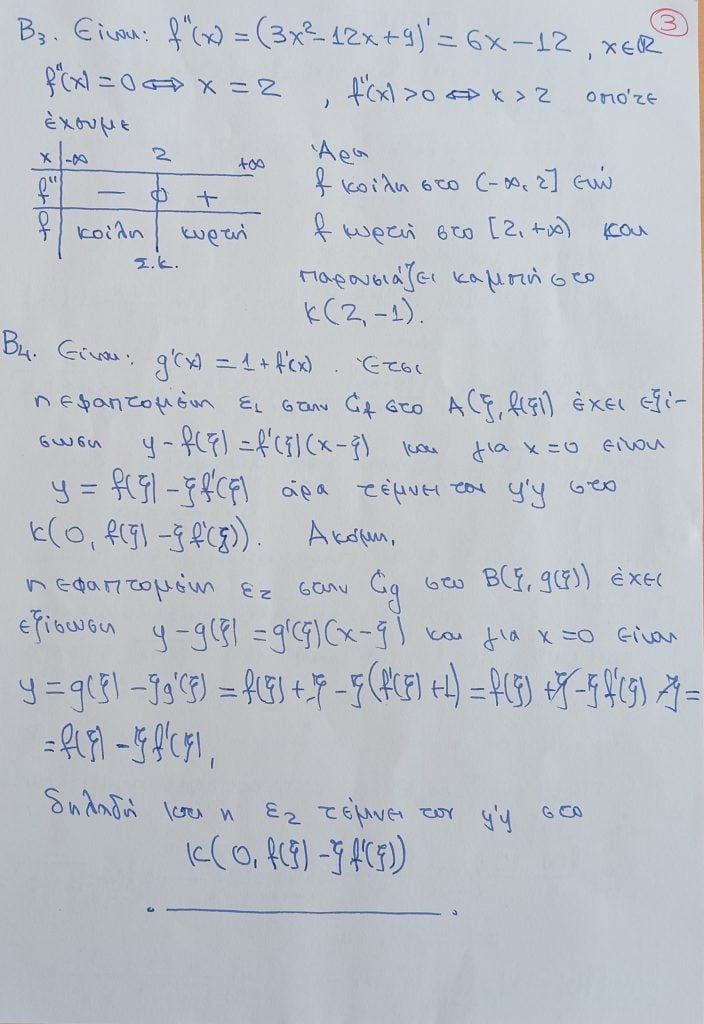 3
Β3. Είναι: f''(x) = (3x²-12x+9)' = 6x-12, x∈ℝ
f''(x)=0 ⇔ x = 2 , f''(x)>0 ⇔ x>2 οπότε
έχουμε
x | -∞ 2 +∞
f'' | - 0 +
f | κοίλη | κυρτή
Σ.Κ.
Άρα
f κοίλη στο (-∞, 2] ενώ
f κυρτή στο [2, +∞) και
παρουσιάζει καμπή στο
K(2, -1).
Β4. Είναι: g'(x) = 1 + f'(x). Έτσι
η εφαπτομένη ε1 στην Cf στο A(ξ, f(ξ)) έχει εξί-
σωση y-f(ξ) = f'(ξ)(x-ξ) και για x=0 είναι
y = f(ξ) - ξf'(ξ) άρα τέμνει τον y'y στο
K(0, f(ξ) - ξf'(ξ)). Ακόμη,
η εφαπτομένη ε2 στην Cg στο B(ξ, g(ξ)) έχει
εξίσωση y-g(ξ) = g'(ξ)(x-ξ) και για x=0 είναι
y = g(ξ) - ξg'(ξ) = f(ξ) + ξ - ξ(f'(ξ)+1) = f(ξ) + ξ - ξf'(ξ) - ξ =
= f(ξ) - ξf'(ξ),
δηλαδή και η ε2 τέμνει τον y'y στο
K(0, f(ξ) - ξf'(ξ))